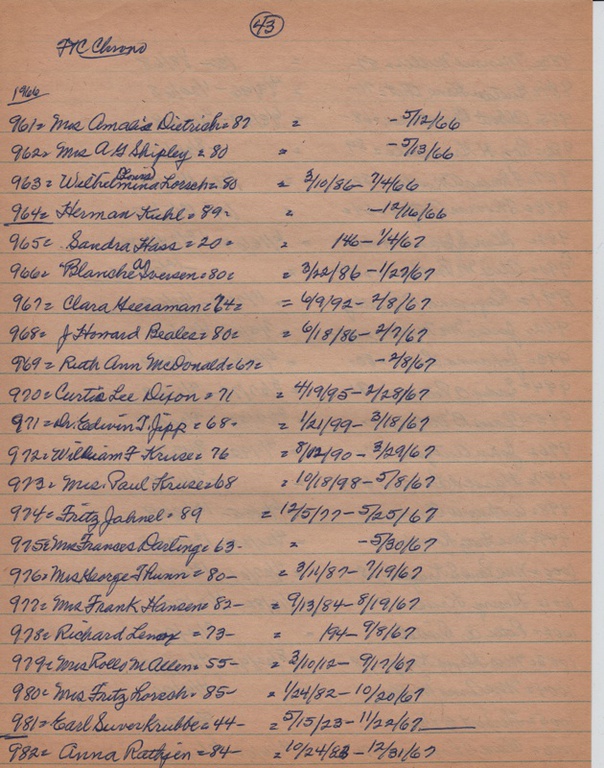 43
FYC Chrono
1966
961= Mrs Amalie Dietrich=87 = -5/12/66
962= Mrs A G Shipley=80 = -5/13/66
963= Wilhelmina (Louis) Lorsch=80 = 3/10/86-7/4/66
964= Herman Kuhl=89= = -12/16/66
965= Sandra Hass=20= = 146-1/4/67
966= Blanche A Iversen=80= = 3/22/86-1/27/67
967= Clara =74= = 6/9/92-2/8/67
968= J Howard Beales=80= = 6/18/86-2/7/67
969= Ruth Ann McDonald=67= -2/8/67
970= Curtis Lee Dixon=71 = 4/19/95-2/28/67
971= Dr. Edwin T. Jipp=68- = 1/21/99-3/18/67
972= William F Kruse=76 = 8/12/90-3/29/67
973= Mrs. Paul Kruse=68 = 10/18/98-5/8/67
974= Fritz Jahnel=89 = 12/5/77-5/25/67
975= Mrs Frances Darling=63- = -5/30/67
976= Mrs George Thunn=80- = 3/11/87-7/19/67
977= Mrs Frank Hansen=82- = 9/13/84-8/19/67
978= Richard Lenox=73- = 194-9/8/67
979= Mrs Rolls M Allen=55- = 3/10/12-9/17/67
980= Mrs Fritz Lorsch=85- = 1/24/82-10/20/67
981= Earl Suverkrubbe=44- = 5/15/23-11/22/67
982= Anna Rathjen=84- = 10/24/83-12/31/67